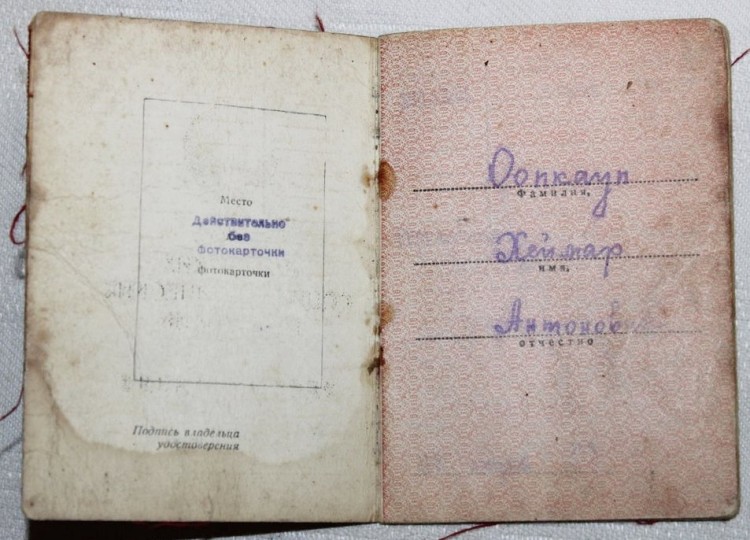 Место
Действительно
без
фотокарточки
фотокарточки
Подпись владельца
удостоверения
Оопкауп
фамилия,
Хеймар
имя,
отчество